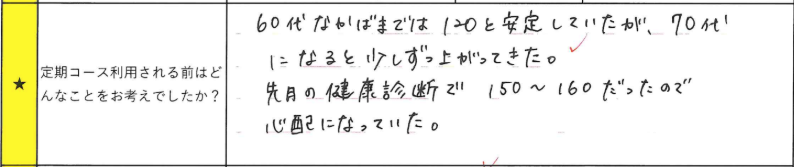 ★
定期コース利用される前はど
んなことをお考えでしたか？
60代なかばまでは120と安定していたが、70代
になると少しずつ上がってきた。
先月の健康診断で 150～160だったので
心配になっていた。